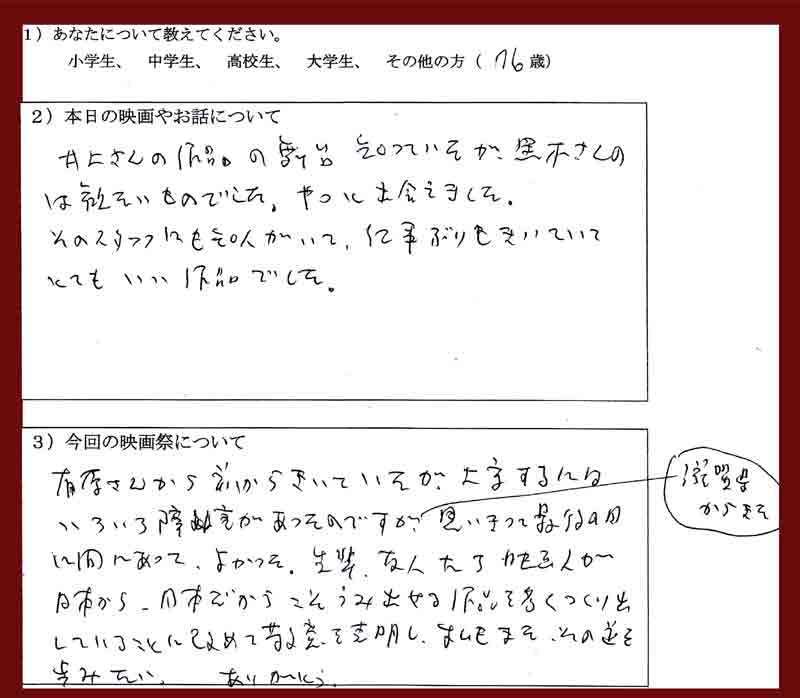 1）あなたについて教えてください。
小学生、 中学生、 高校生、 大学生、 その他の方（ 76 歳）
2）本日の映画やお話について
井上さんの作品の舞台 知っていたが、黒木さんの
は観たいものでした。やっと出会えました。
そのスタッフにも知人がいて、仕事ぶりもきいていて
とても いい 作品でした。
3）今回の映画祭について
有原さんから 前からきいていたが、 するには
いろいろ障害があったのですが、思いきって最後の日
に間にあって、よかった。 映画人が
日本から、日本だからこそうみ出せる作品を多くつくり出
していることに改めて敬意を表明し、私もまた、その道を
歩みたい。 ありがとう。
佐賀県
からきた